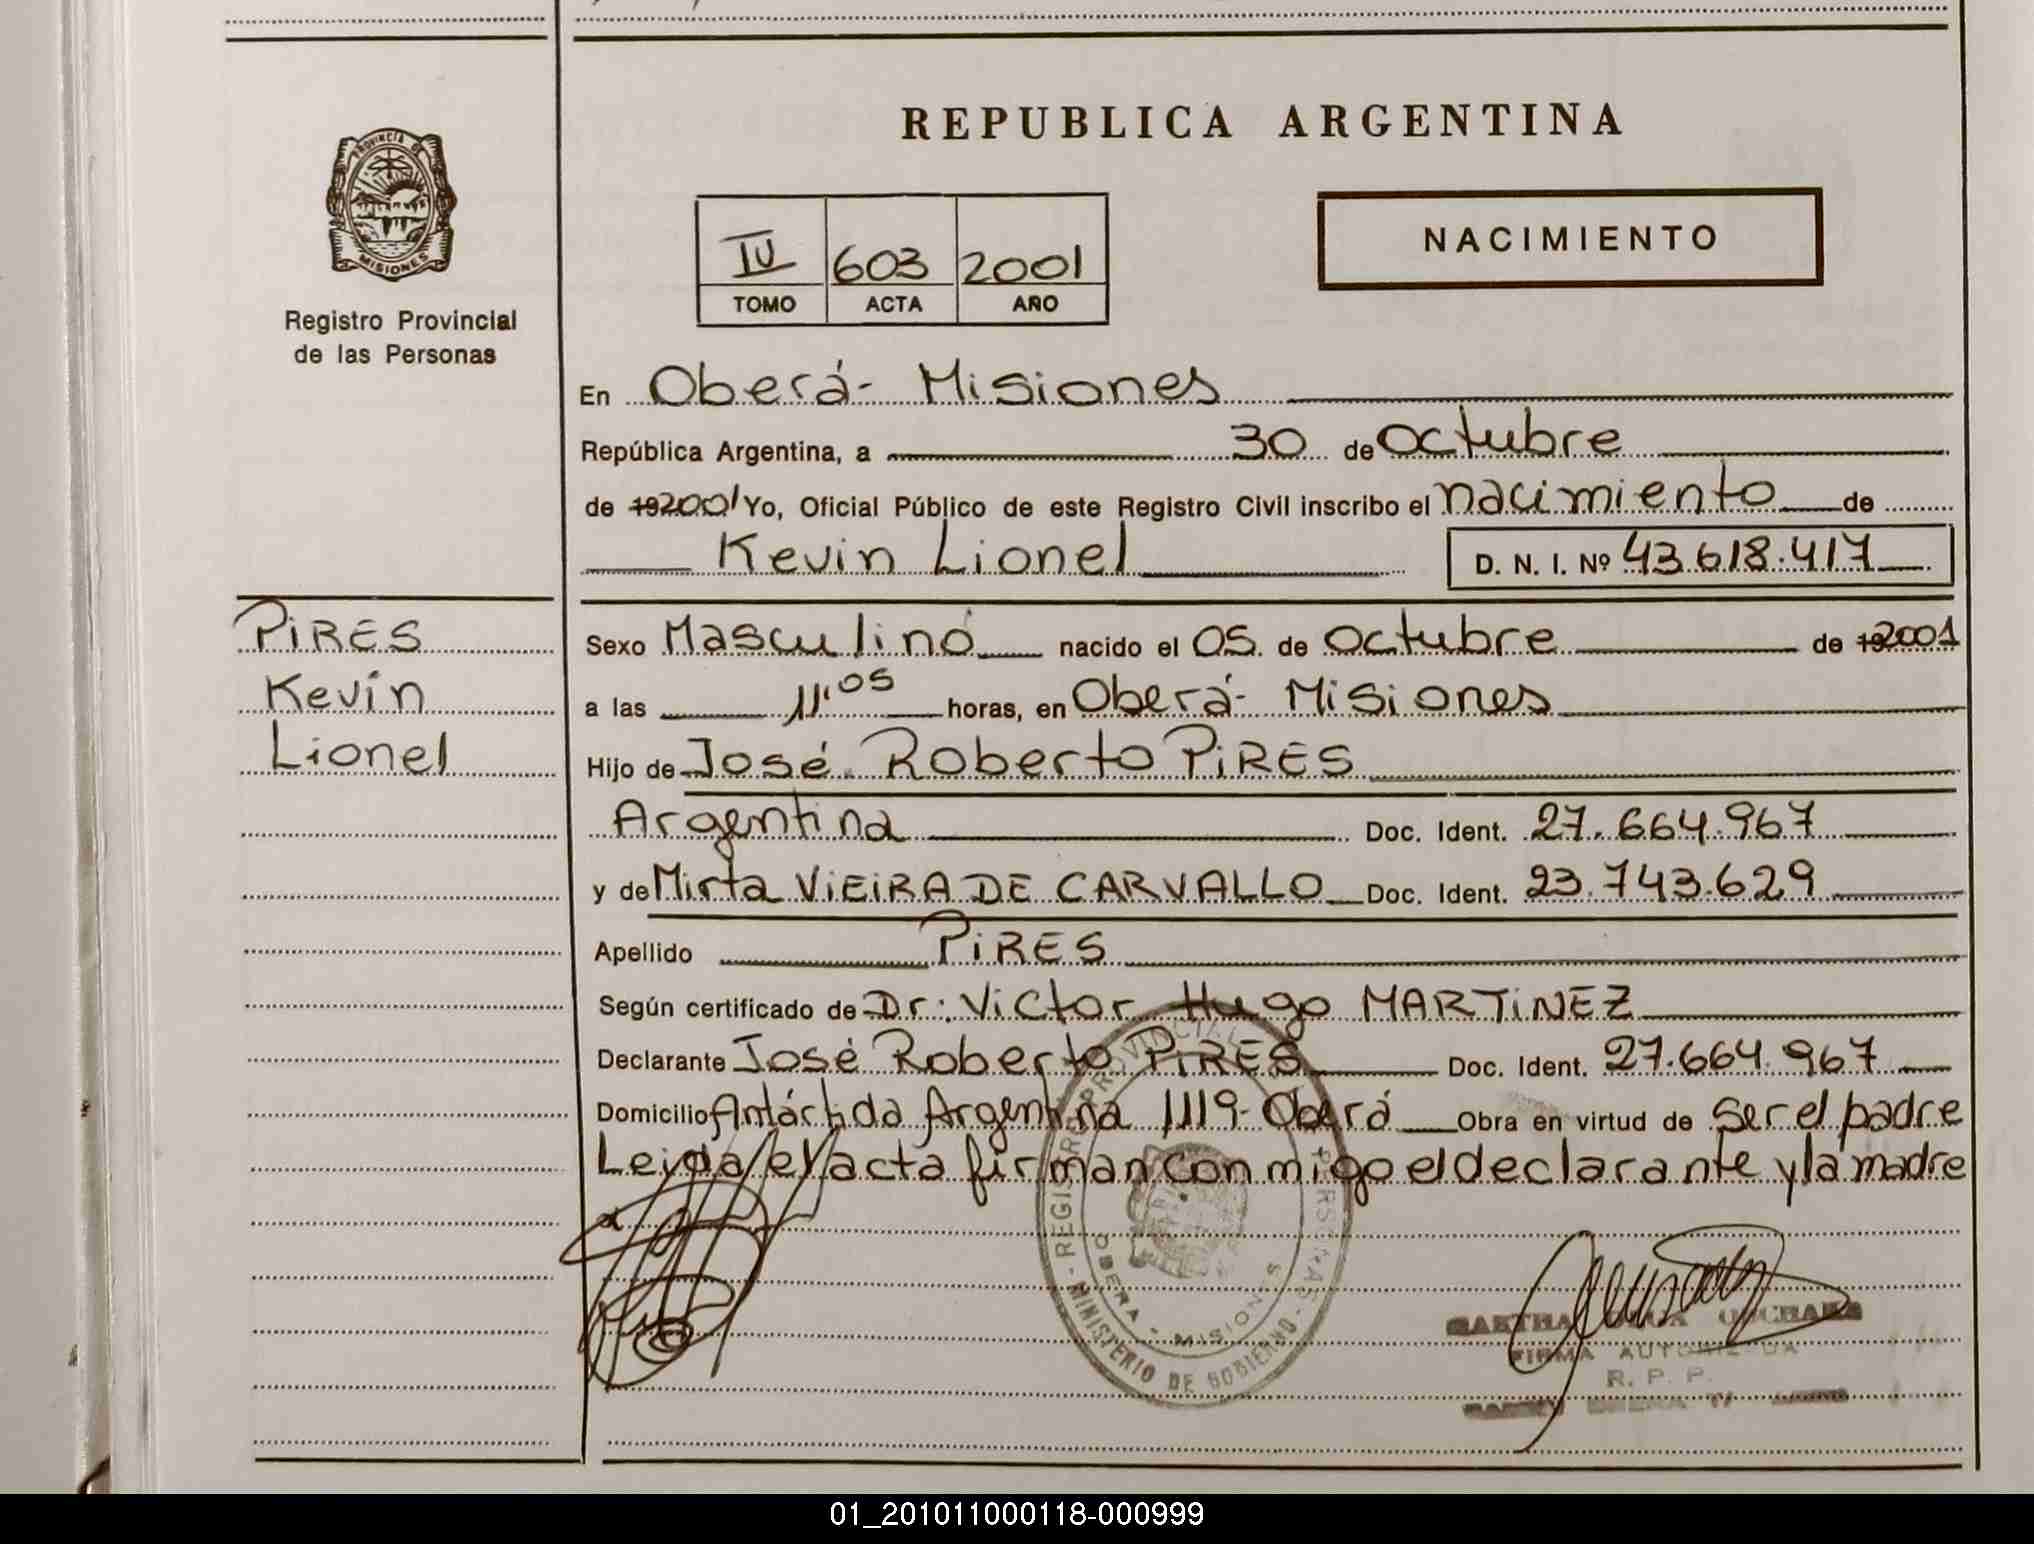 REPUBLICA ARGENTINA
PROVINCIA DE
MISIONES
Registro Provincial
de las Personas
IV 603 2001
TOMO ACTA AÑO
NACIMIENTO
En Oberá- Misiones
República Argentina, a 30 de Octubre
de 192001 Yo, Oficial Público de este Registro Civil inscribo el nacimiento de
Kevin Lionel D. N. I. Nº 43.618.417
PIRES
Kevin
Lionel
Sexo Masculino nacido el 05 de Octubre de 192001
a las 11:05 horas, en Oberá- Misiones
Hijo de José Roberto PIRES
Argentina Doc. Ident. 27.664.967
y de Mirta VIEIRA DE CARVALLO Doc. Ident. 23.743.629
Apellido PIRES
Según certificado de Dr: Victor Hugo MARTINEZ
Declarante José Roberto PIRES Doc. Ident. 27.664.967
Domicilio Antártida Argentina 1119- Oberá Obra en virtud de Ser el padre
Leida el acta firman conmigo el declarante y la madre
REGISTRO PROVINCIAL
OBERA - MISIONES
MINISTERIO DE GOBIERNO
FIRMA AUTORIZADA
R. P. P.
01_201011000118-000999